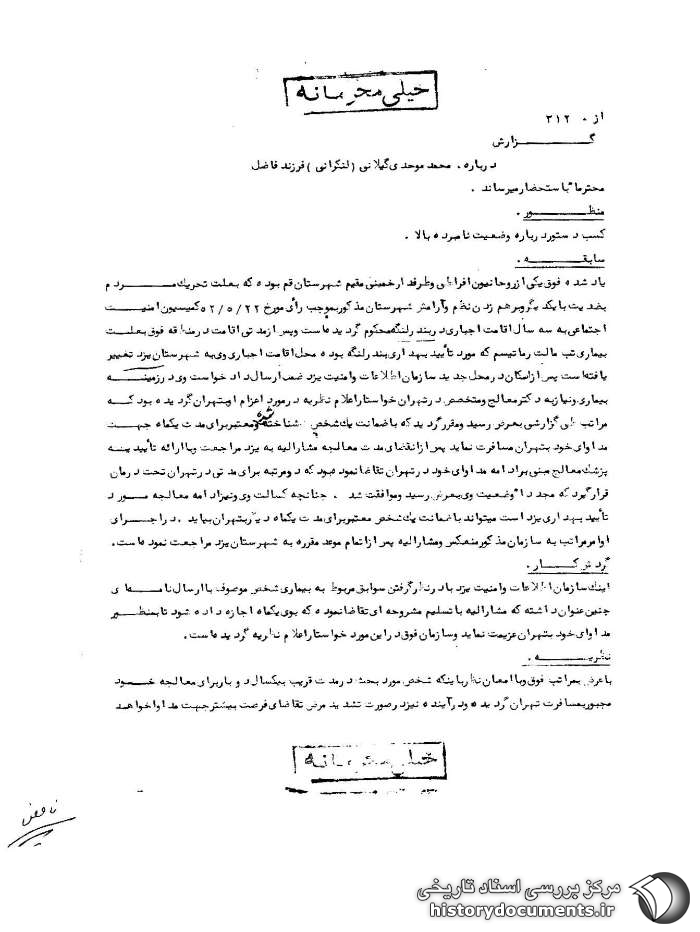 خیلی محرمانه
از ۰ ۳۱۲
گـــــزارش
درباره ، محمد موحدی گیلانی (لنکرانی) فرزند فاضل
محترماً باستحضار میرساند .
منظـــــور .
کسب دستور درباره وضعیت نامبرده بالا .
سابقـــــه .
یاد شده فوق یکی از روحانیون افراطی وطرفدار خمینی مقیم شهرستان قم بوده که بعلت تحریک مـــردم
بضدیت با یکدیگر وبرهم زدن نظم وآرامش شهرستان مذکور بموجب رأی مورخ ۵۲/۵/۲۲ کمیسیون امنیـت
اجتماعی به سه سال اقامت اجباری در بندرلنگه محکوم گردیده است وپس از مدتی اقامت در منطقه فوق بعلـت
بیماری تب مالت رماتیسم که مورد تأیید بهداری بندرلنگه بوده محل اقامت اجباری وی به شهرستان یزد تغییر
یافته است پس از اسکان در محل جدید سازمان اطلاعات وامنیت یزد ضمن ارسال دادخواست وی در زمینــه
بیماری ونیاز به دکتر معالج ومتخصص در تهران خواستار اعلام نظریه در مورد اعزام او بتهران گردیده بود کـه
مراتب طی گزارشی بعرض رسید ومقرر گردید که با ضمانت یک شخص شناخته شده ومعتبر برای مدت یکماه جهـت
مداوای خود بتهران مسافرت نماید پس از انقضای مدت معالجه مشارالیه به یزد مراجعت وبا ارائه تأییدیــه
پزشک معالج مبنی برادامه مداوای خود در تهران تقاضا نمود که دومرتبه برای مدتی در تهران تحت درمان
قرار گیرد که مجدداً وضعیت وی بعرض رسید وموافقت شد . چنانچه کسالت وی ونیز ادامه معالجه مـورد
تأیید بهداری یزد است میتواند با ضمانت یک شخص معتبر برای مدت یکماه دیگر بتهران بیاید . در اجـرای
اوامر مراتب به سازمان مذکور منعکس ومشارالیه پس از اتمام موعد مقرره به شهرستان یزد مراجعت نموده است.
گردش کـــار .
اینک سازمان اطلاعات وامنیت یزد با در نظر گرفتن سوابق مربوط به بیماری شخص موصوف با ارسال نامـه ای
چنین عنوان داشته که مشارالیه با تسلیم مشروحه ای تقاضا نموده که بوی یکماه اجازه داده شود تا بمنظـور
مداوای خود بتهران عزیمت نماید وسازمان فوق در این مورد خواستار اعلام نظریه گردیده است.
نظریـــه .
با عرض بمراتب فوق وبا امعان نظر باینکه شخص مورد بحث در مدت قریب بیکسال دو بار برای معالجه خـود
مجبور بمسافرت تهران گردیده ودر آینده نیز در صورت تشدید مرض تقاضای فرصت بیشتر جهت مداوا خواهـد
خیلی محرمانه
مرکز بررسی اسناد تاریخی
historydocuments.ir